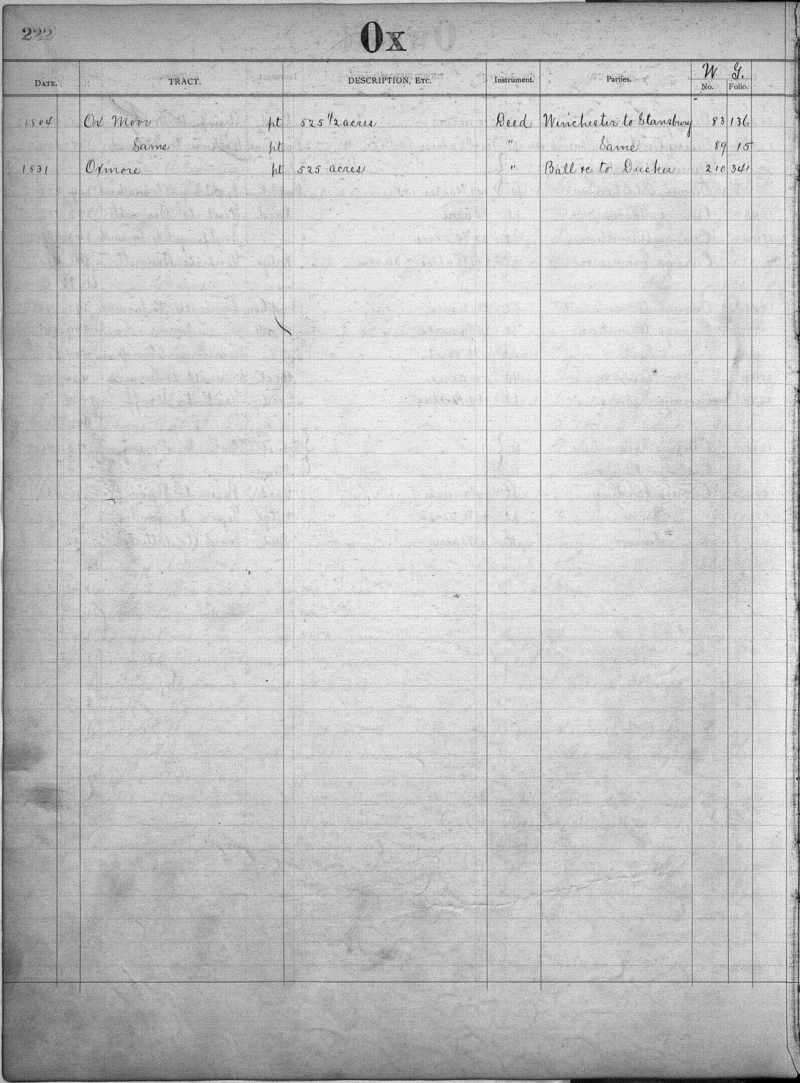 222
Ox
W. G.
DATE. TRACT. DESCRIPTION, Etc. Instrument. Parties. No. Folio.
1804 Ox Moor pt 525 1/2 acres Deed Winchester to Stansbury 83 136
Same pt " Same 89 15
1831 Oxmore pt 525 acres " Ball &c to Ducker 210 341